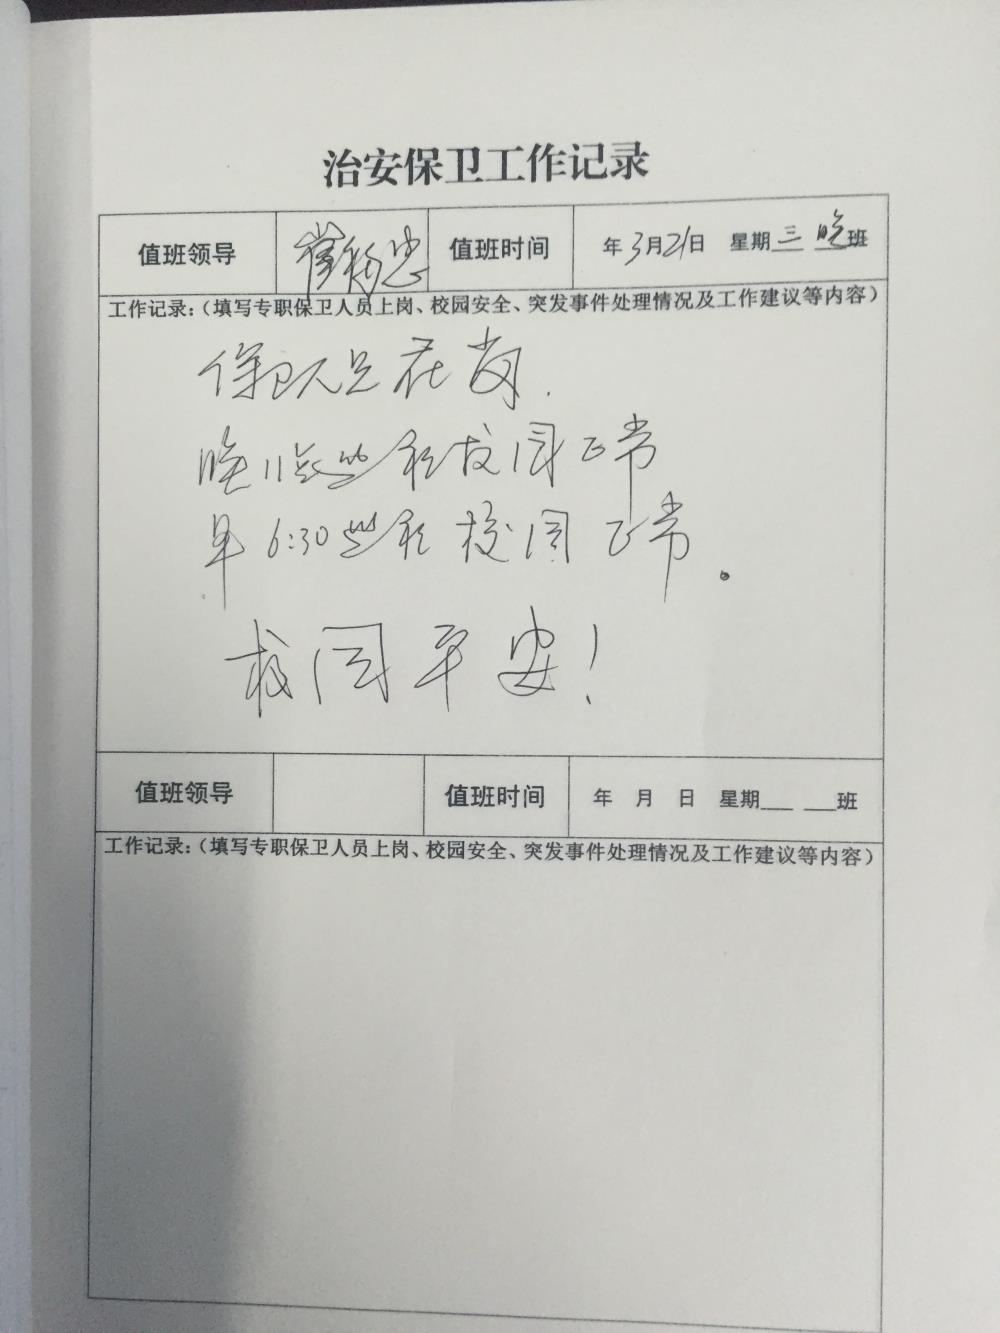 治安保卫工作记录
值班领导 崔 忠 值班时间 年3月21日 星期三 晚班
工作记录：（填写专职保卫人员上岗、校园安全、突发事件处理情况及工作建议等内容）
保卫人员在岗.
晚11点 校园正常
早6:30 校园正常。
校园平安！
值班领导 值班时间 年 月 日 星期___ ___班
工作记录：（填写专职保卫人员上岗、校园安全、突发事件处理情况及工作建议等内容）